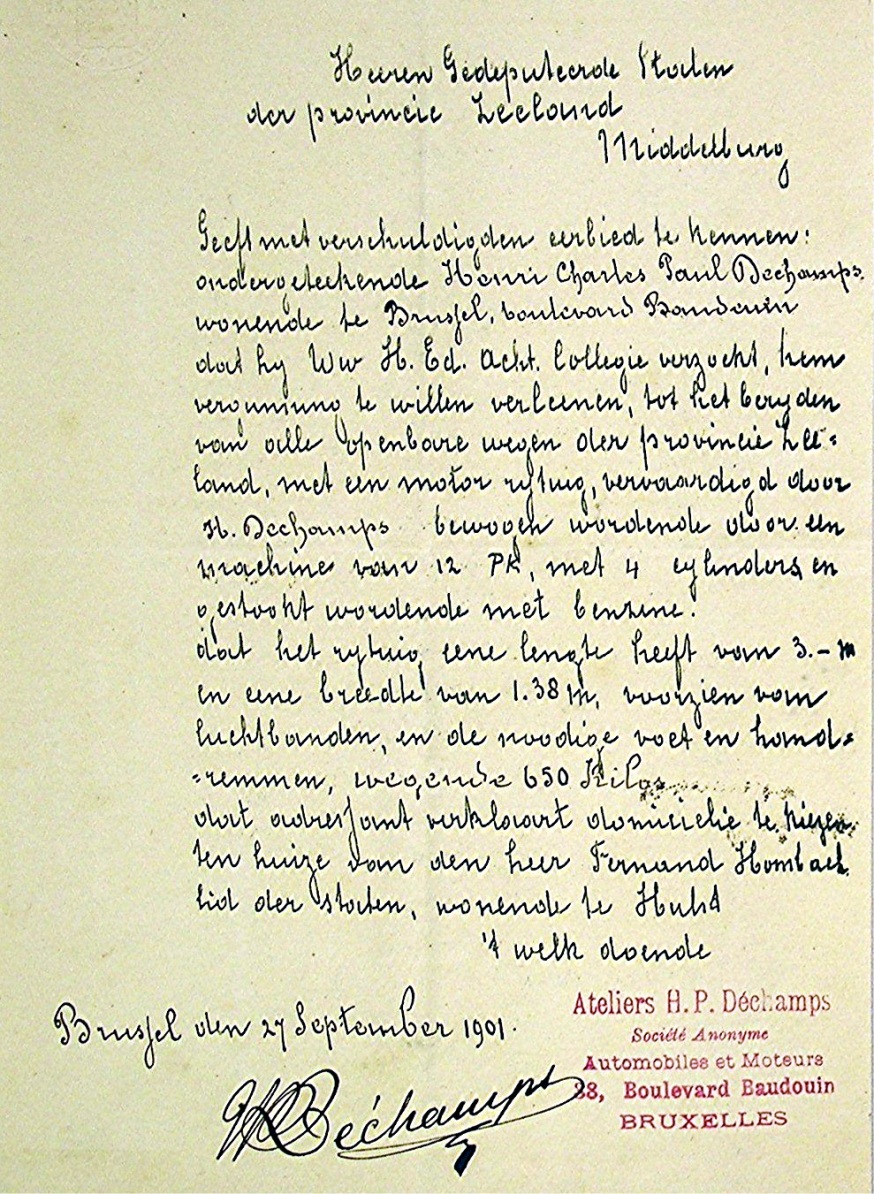 Heeren Gedeputeerde Staten
der provincie Zeeland
Middelburg
Geeft met verschuldigden eerbied te kennen:
ondergeteekende Henri Charles Paul Dechamps.
wonende te Brussel, boulevard Baudouin
dat hy Uw H. Ed. Acht. Collegie verzocht, hem
vergunning te willen verleenen, tot het beryden
van alle openbare wegen der provincie Zee=
land, met een motor rytuig, vervaardigd door
H. Dechamps bewogen wordende door een
machine van 12 PK, met 4 cylinders, en
gestookt wordende met benzine.
dat het rytuig eene lengte heeft van 3.- m
en eene breedte van 1.38 m, voorzien van
luchtbanden, en de noodige voet en hand=
=remmen, wegende 650 Kilos
dat adressant verklaart domicielie te kiezen
ten huize van den heer Fernand Hombach
lid der staten, wonende te Hulst
't welk doende
Brussel den 27 September 1901.
Ateliers H. P. Déchamps
Société Anonyme
Automobiles et Moteurs
88, Boulevard Baudouin
BRUXELLES
HDéchamps